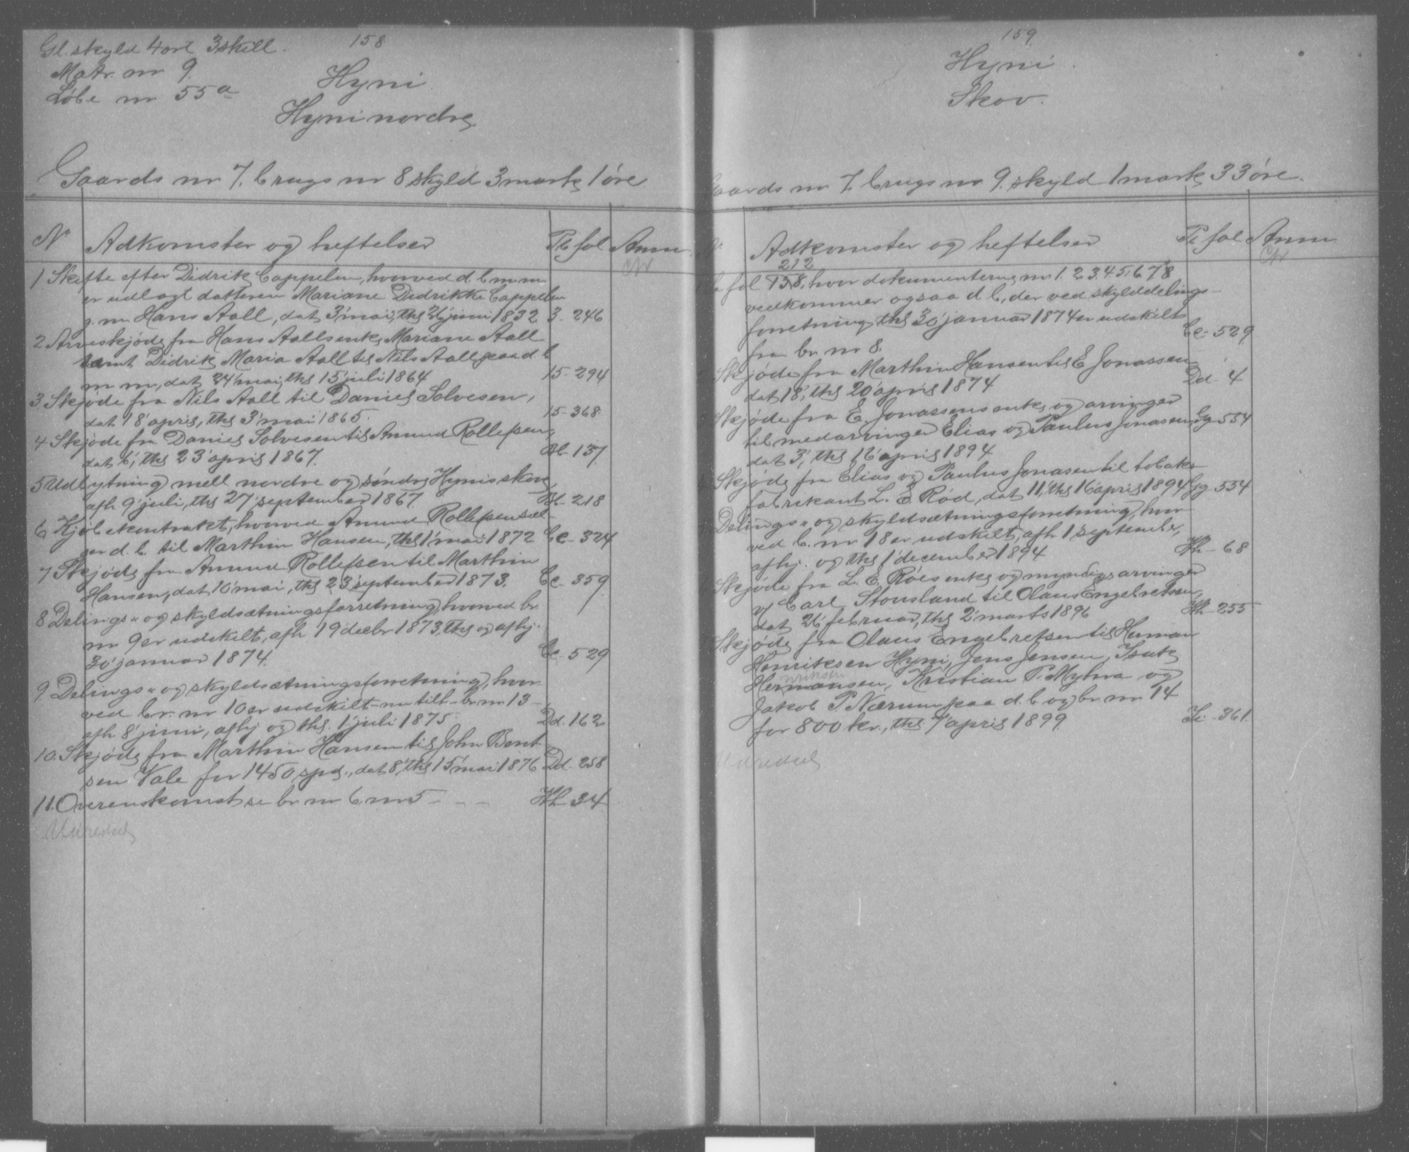 Gl. skyld 4 ort 3 skill.
158
Matr. nr 9.
Løbe nr 55a
Hyni
Hyni nordre
Gaards nr 7, brugs nr 8 skyld 3 mark 1 øre
Nr Adkomster og heftelser Pb fol Anm.
1 Skifte efter Didrik Cappelen, hvorved d. b. m. m.
er udlagt datteren Mariane Didrikke Cappelen
g. m. Hans Aall, dat. 3' mai, thl. juni 1832 3 - 246
2 Arveskjøde fra Hans Aalls enke Mariane Aall
samt Didrik, Maria Aall til Nils Aall paa d b
m m, dat. 24' mai, thl 15' juli 1864 15 - 294
3 Skjøde fra Nils Aall til Daniel Solvesen,
dat 18' april, thl 3' mai 1865. 15 - 368
4 Skjøde fra Daniel Solvesen til Amund Rollefsen,
dat. thl 23' april 1867. Bb - 137
5 Udskytning mell nordre og søndre Hynis skov,
afh 9' juli, thl 27' september 1867 Bb - 218
6 Kjøbekontrakt, hvorved Amund Rollefsen sæl-
ger d. b. til Marthin Hansen, thl 1' mai 1872 Cc - 324
7 Skjøde fra Amund Rollefsen til Marthin
Hansen, dat. 16' mai, thl 23' september 1873. Cc - 359
8 Delings- og skyldsætningsforretning, hvorved br.
nr 9 er udskilt, afh 19 decbr 1873, thl og afhj.
30' januar 1874. Cc - 529
9 Delings- og skyldsætningsforretning, hvor
ved br. nr 10 er udskilt - nu tilh - br. nr 13 -
afh 8' juni, afhj og thl. 1' juli 1875. Dd. 162
10. Skjøde fra Marthin Hansen til John Bent
sen Vale for 1450 spd., dat 8', thl 15' mai 1876 Dd. 258
11. Overenskomst se br nr 6 nr 5 - - - Hh - 34
159
Hyni
Skov.
Gaards nr 7. brugs no 9. skyld 1 mark 33 øre.
Nr Adkomster og heftelser Pt fol Anm
212
fol 158, hvor dokumenterne nr 1. 2. 3. 4. 5. 6. 7. 8,
vedkommer ogsaa d b, der ved skylddelings-
forretning, thl 30' januar 1874 er udskilt
fra br. nr 8. Cc - 529
Skjøde fra Marthin Hansen til E. Jonassen
dat 18', thl 20' april 1874 Dd. 4
Skjøde fra E. Jonassens enke og arvinger
til medarvinger Elias og Paulus Jonassen, Gg - 534
dat 3', thl 16' april 1894
Skjøde fra Elias og Paulus Jonasen til tobaks-
fabrikant L. E. Röd, dat 11', thl 16 april 1894 Gg - 534
Delings- og skyldsætningsforretning, hvor
ved b. nr 18 er udskilt, afh 1' september,
afhj. og thl 1' december 1894 Hh - 68
Skjøde fra L. E. Röes enke og myndige arvinger
v/ Carl Stousland til Olaus Engebretsen,
dat 26' februar, thl 2' marts 1896 Hh - 255
Skjøde fra Olaus Engebretsen til Herman
Henriksen Hyni, Jens Jensen, Isak
Hermansen, Kristian P. Myhra og
Jakob P. Nærum paa d b og br nr 14
for 800 kr., thl 7' april 1899 Ii - 361